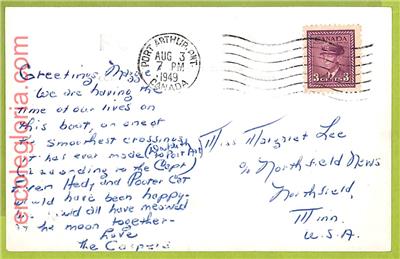 PORT ARTHUR, ONT.
AUG 3
7 PM
1949
CANADA
CANADA
3 CENTS 3
Greetings, Maggie
We are having the
time of our lives on
this boat, on one of
the smoothest crossings
it has ever made (Duluth to Port Art)
according to the Capt.
Even Hedy and Pouter Cat
would have been happy;
would all have meowed
the moon together-
Love
The Caspers
Miss Margriet Lee
c/o Northfield News
Northfield,
Minn
U.S.A.
ercolegloria.com